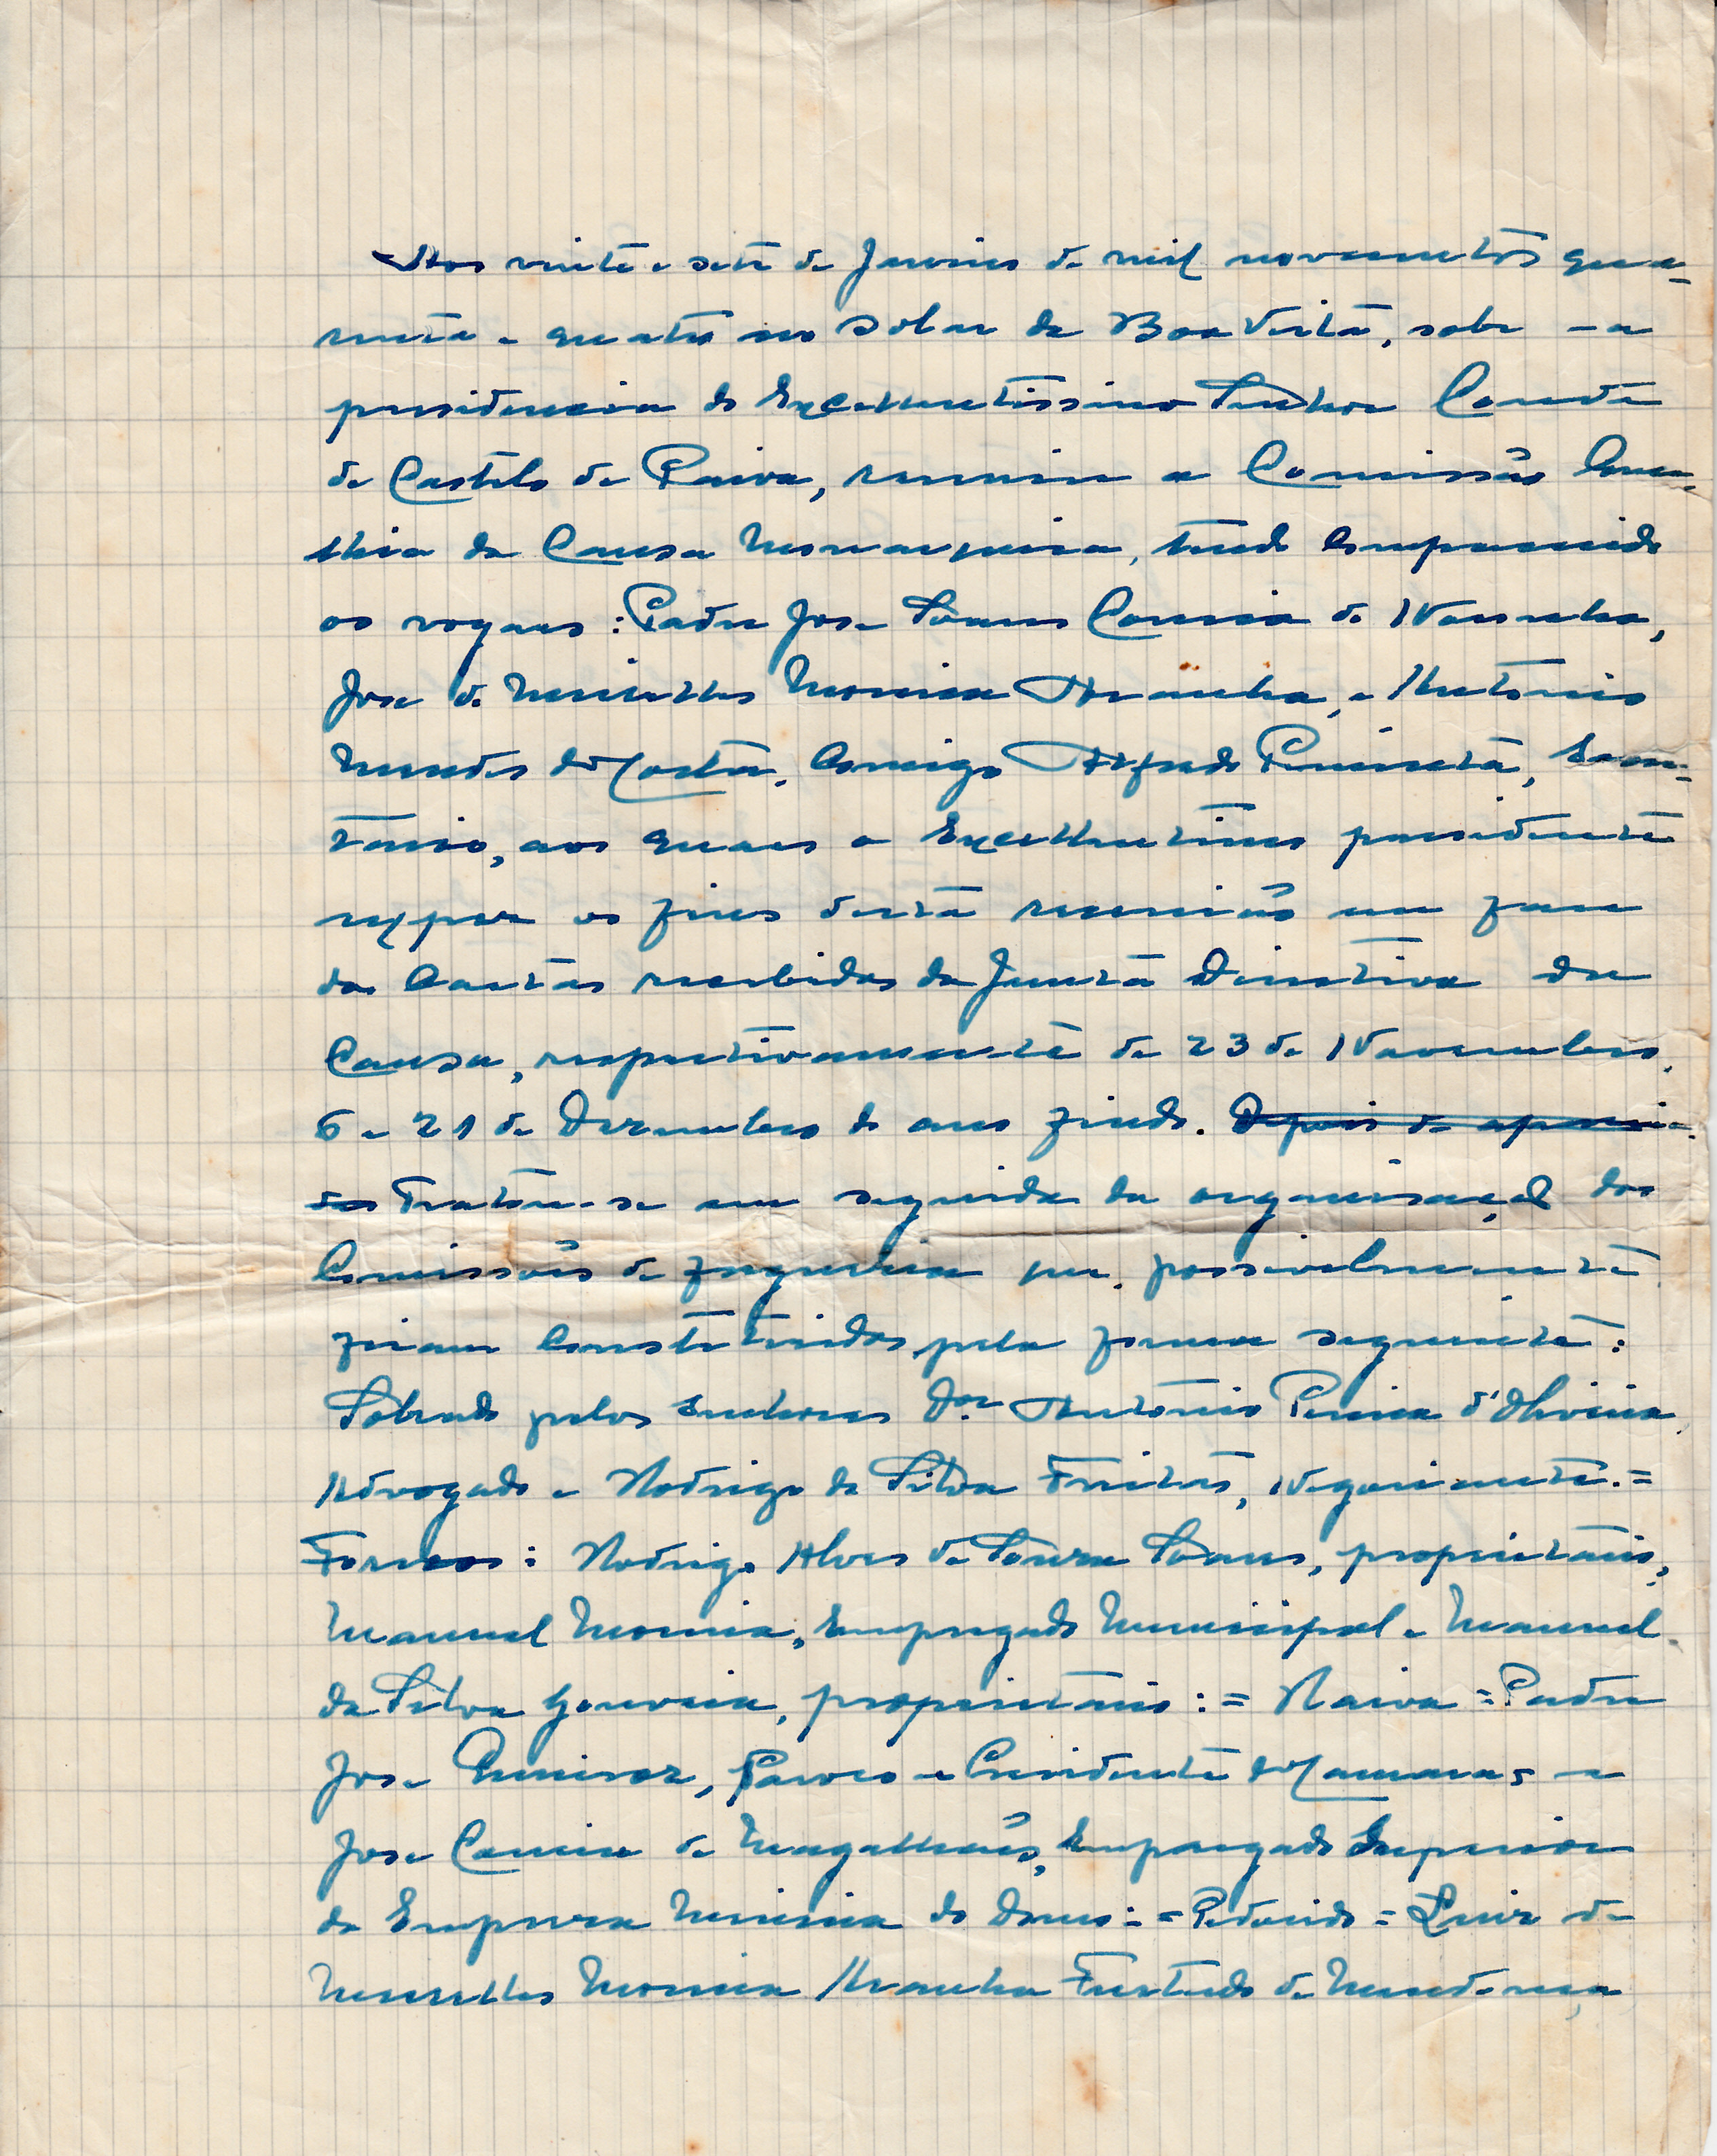 Aos vinte e sete de Janeiro de mil novecentos qua-
renta e quatro no Solar da Boa Vista, sobe a
presidencia do Excelentissimo Senhor Conde
de Castelo de Paiva, reuniu a Comissão Conce-
lhia da Causa Monarquica, tendo comparecido
os vogaes: Padre Jose Soares Correia de Noronha,
Jose de Meirelles Moreira Aranha, e Antonio
Mendes da Costa, comigo Alfredo Pimenta, Secre-
tario, aos quaes o Excellentissimo presidente
expoz os fins desta reunião em face
das cartas recebidas da Junta Diretiva da
Causa, respetivamente de 23 de Novembro,
6 e 21 de Dezembro do ano findo. Depois de aprecia-
das Tratou-se em seguida da organisação das
Comissões de freguesia que, possivelmente
ficam constituidas pela forma seguinte:
Sobrado pelos senhores Dor Antonio Pereira d'Oliveira,
Advogado e Rodrigo da Silva Freitas, Negociante.=
Fornos: Rodrigo Alves de Souza Soares, proprietario,
Manuel Moreira, Empregado Municipal e Manuel
da Silva Gouveia, proprietario:= Raiva = Padre
Jose Paroco e Presidente da Camara; e
Jose Correia de Magalhães, Empregado Superior
da Empreza Mineira do Douro:= Pedorido = Luiz de
Meirelles Moreira Aranha Furtado de Mendonça